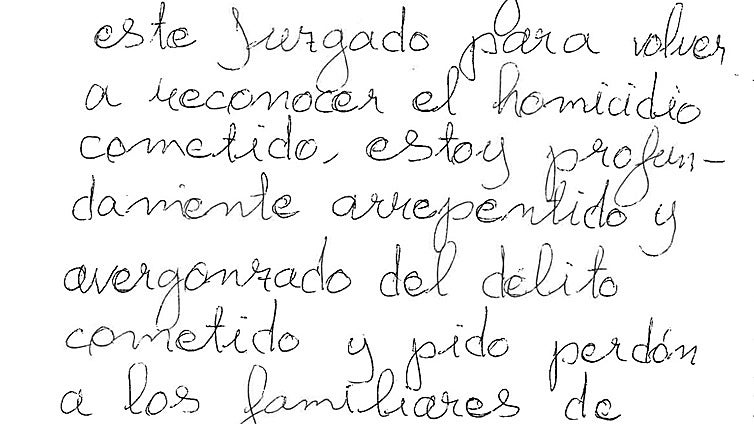 este Juzgado para volver
a reconocer el homicidio
cometido, estoy profun-
damente arrepentido y
avergonzado del delito
cometido y pido perdón
a los familiares de